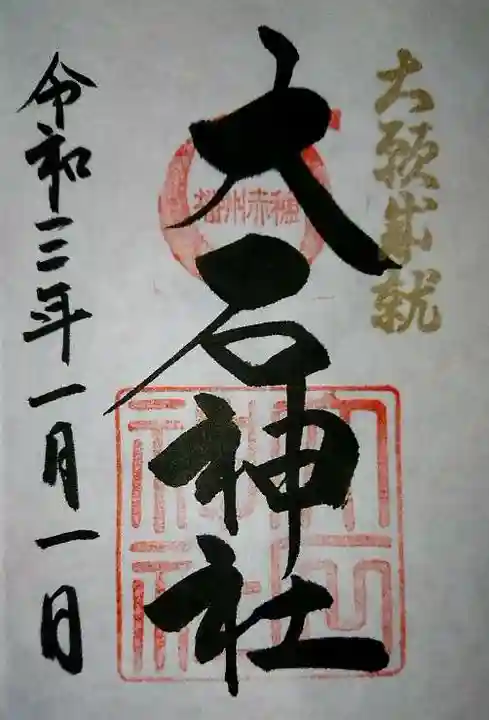 大願成就
大石神社
播州赤穂
大石神社
令和三年一月一日